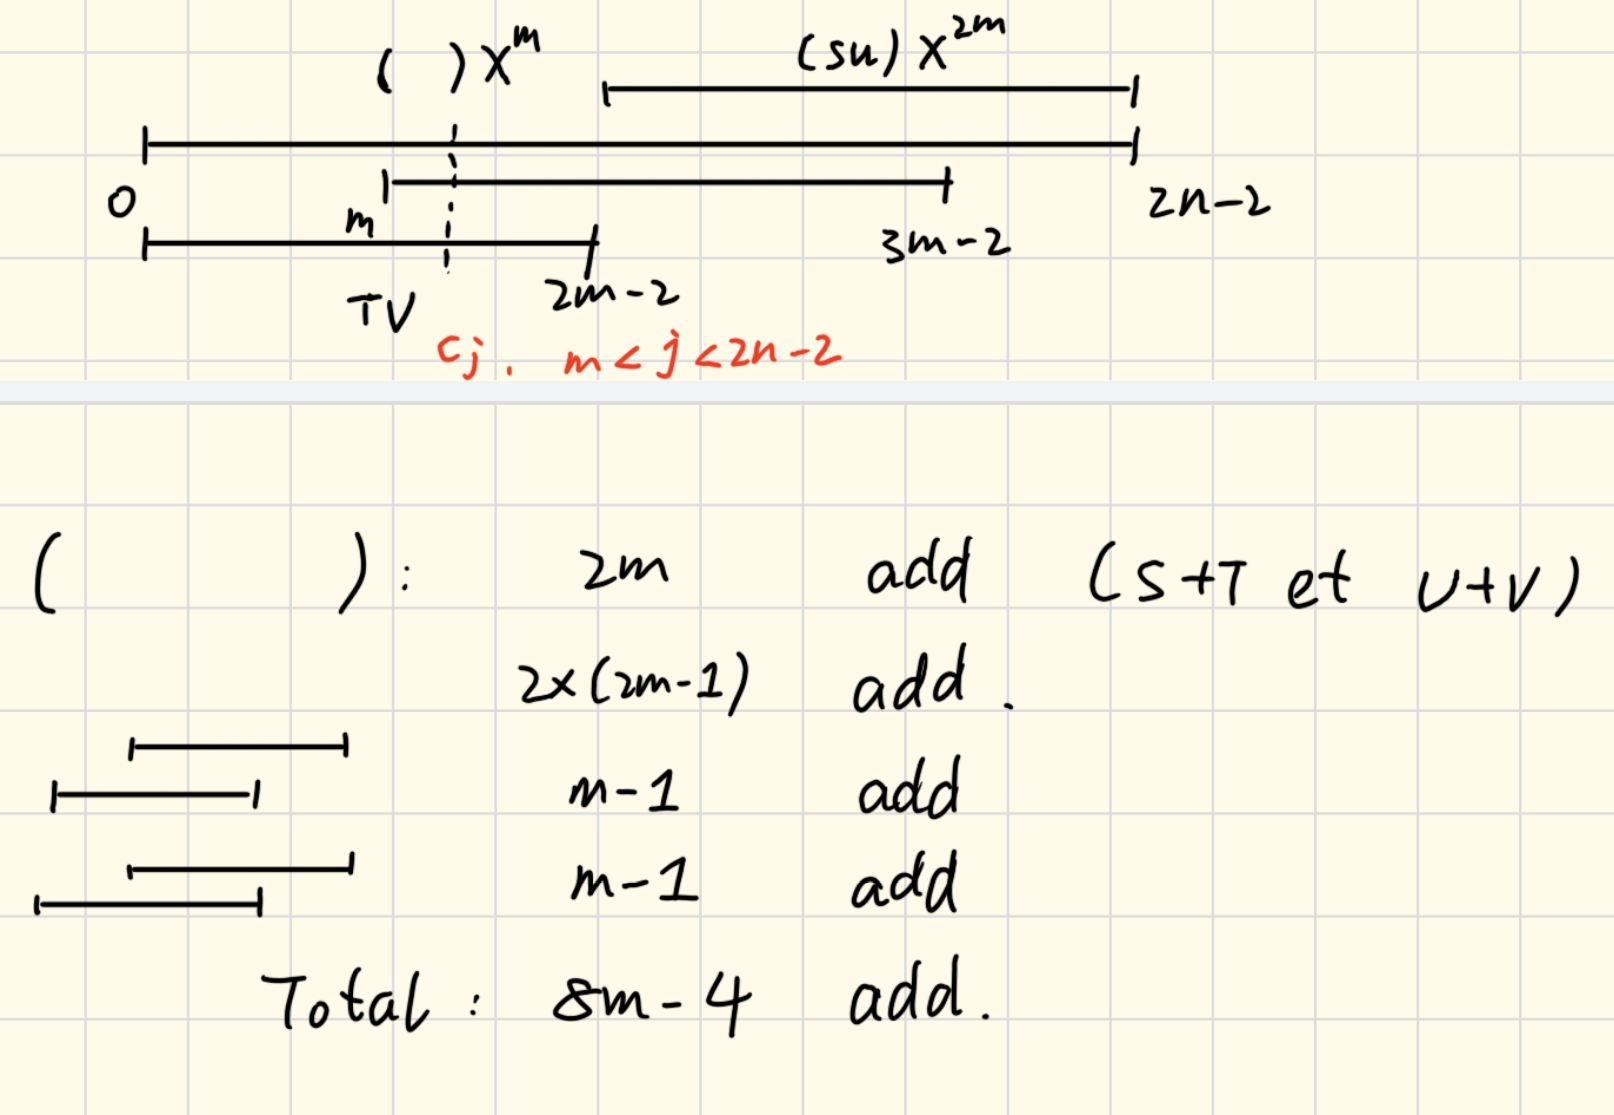 ( ) X^m (su) X^{2m}
0 m 2n-2
3m-2
TV 2m-2
cj. m < j < 2n-2
( ) : 2m add (S+T et U+V)
2x(2m-1) add.
m-1 add
m-1 add
Total : 8m-4 add.